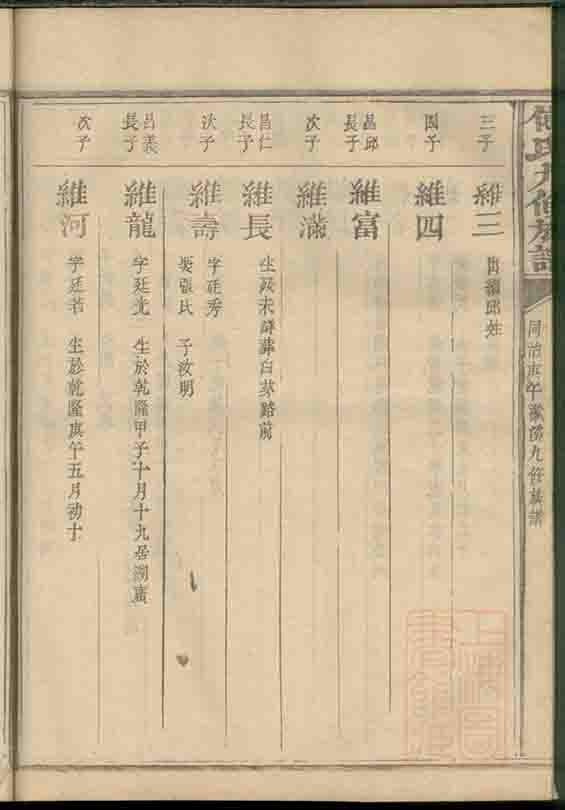 氏九修族譜
同治庚午 九修族譜
三子
維三
出繼邱姓
四子
維四
昌邱
長子
維富
次子
維滿
昌仁
長子
維長
生歿未詳葬白茅路前
次子
維壽
字廷秀
娶張氏 子汝明
昌義
長子
維龍
字廷光 生於乾隆甲子十月十九居湖廣
次子
維河
字廷若 生於乾隆庚午五月初十
上海圖
書館藏